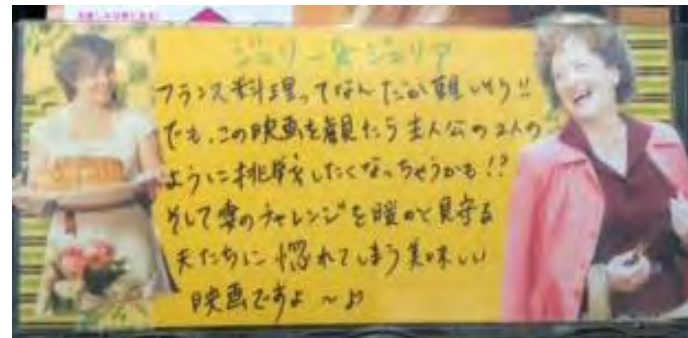 ジュリー&ジュリア
フランス料理ってなんだか難しそう!!
でも、この映画を観たら主人公の2人の
ように挑戦したくなっちゃうかも!?
そして妻のチャレンジを暖かく見守る
夫たちに惚れてしまう美味しい
映画ですよ～♪